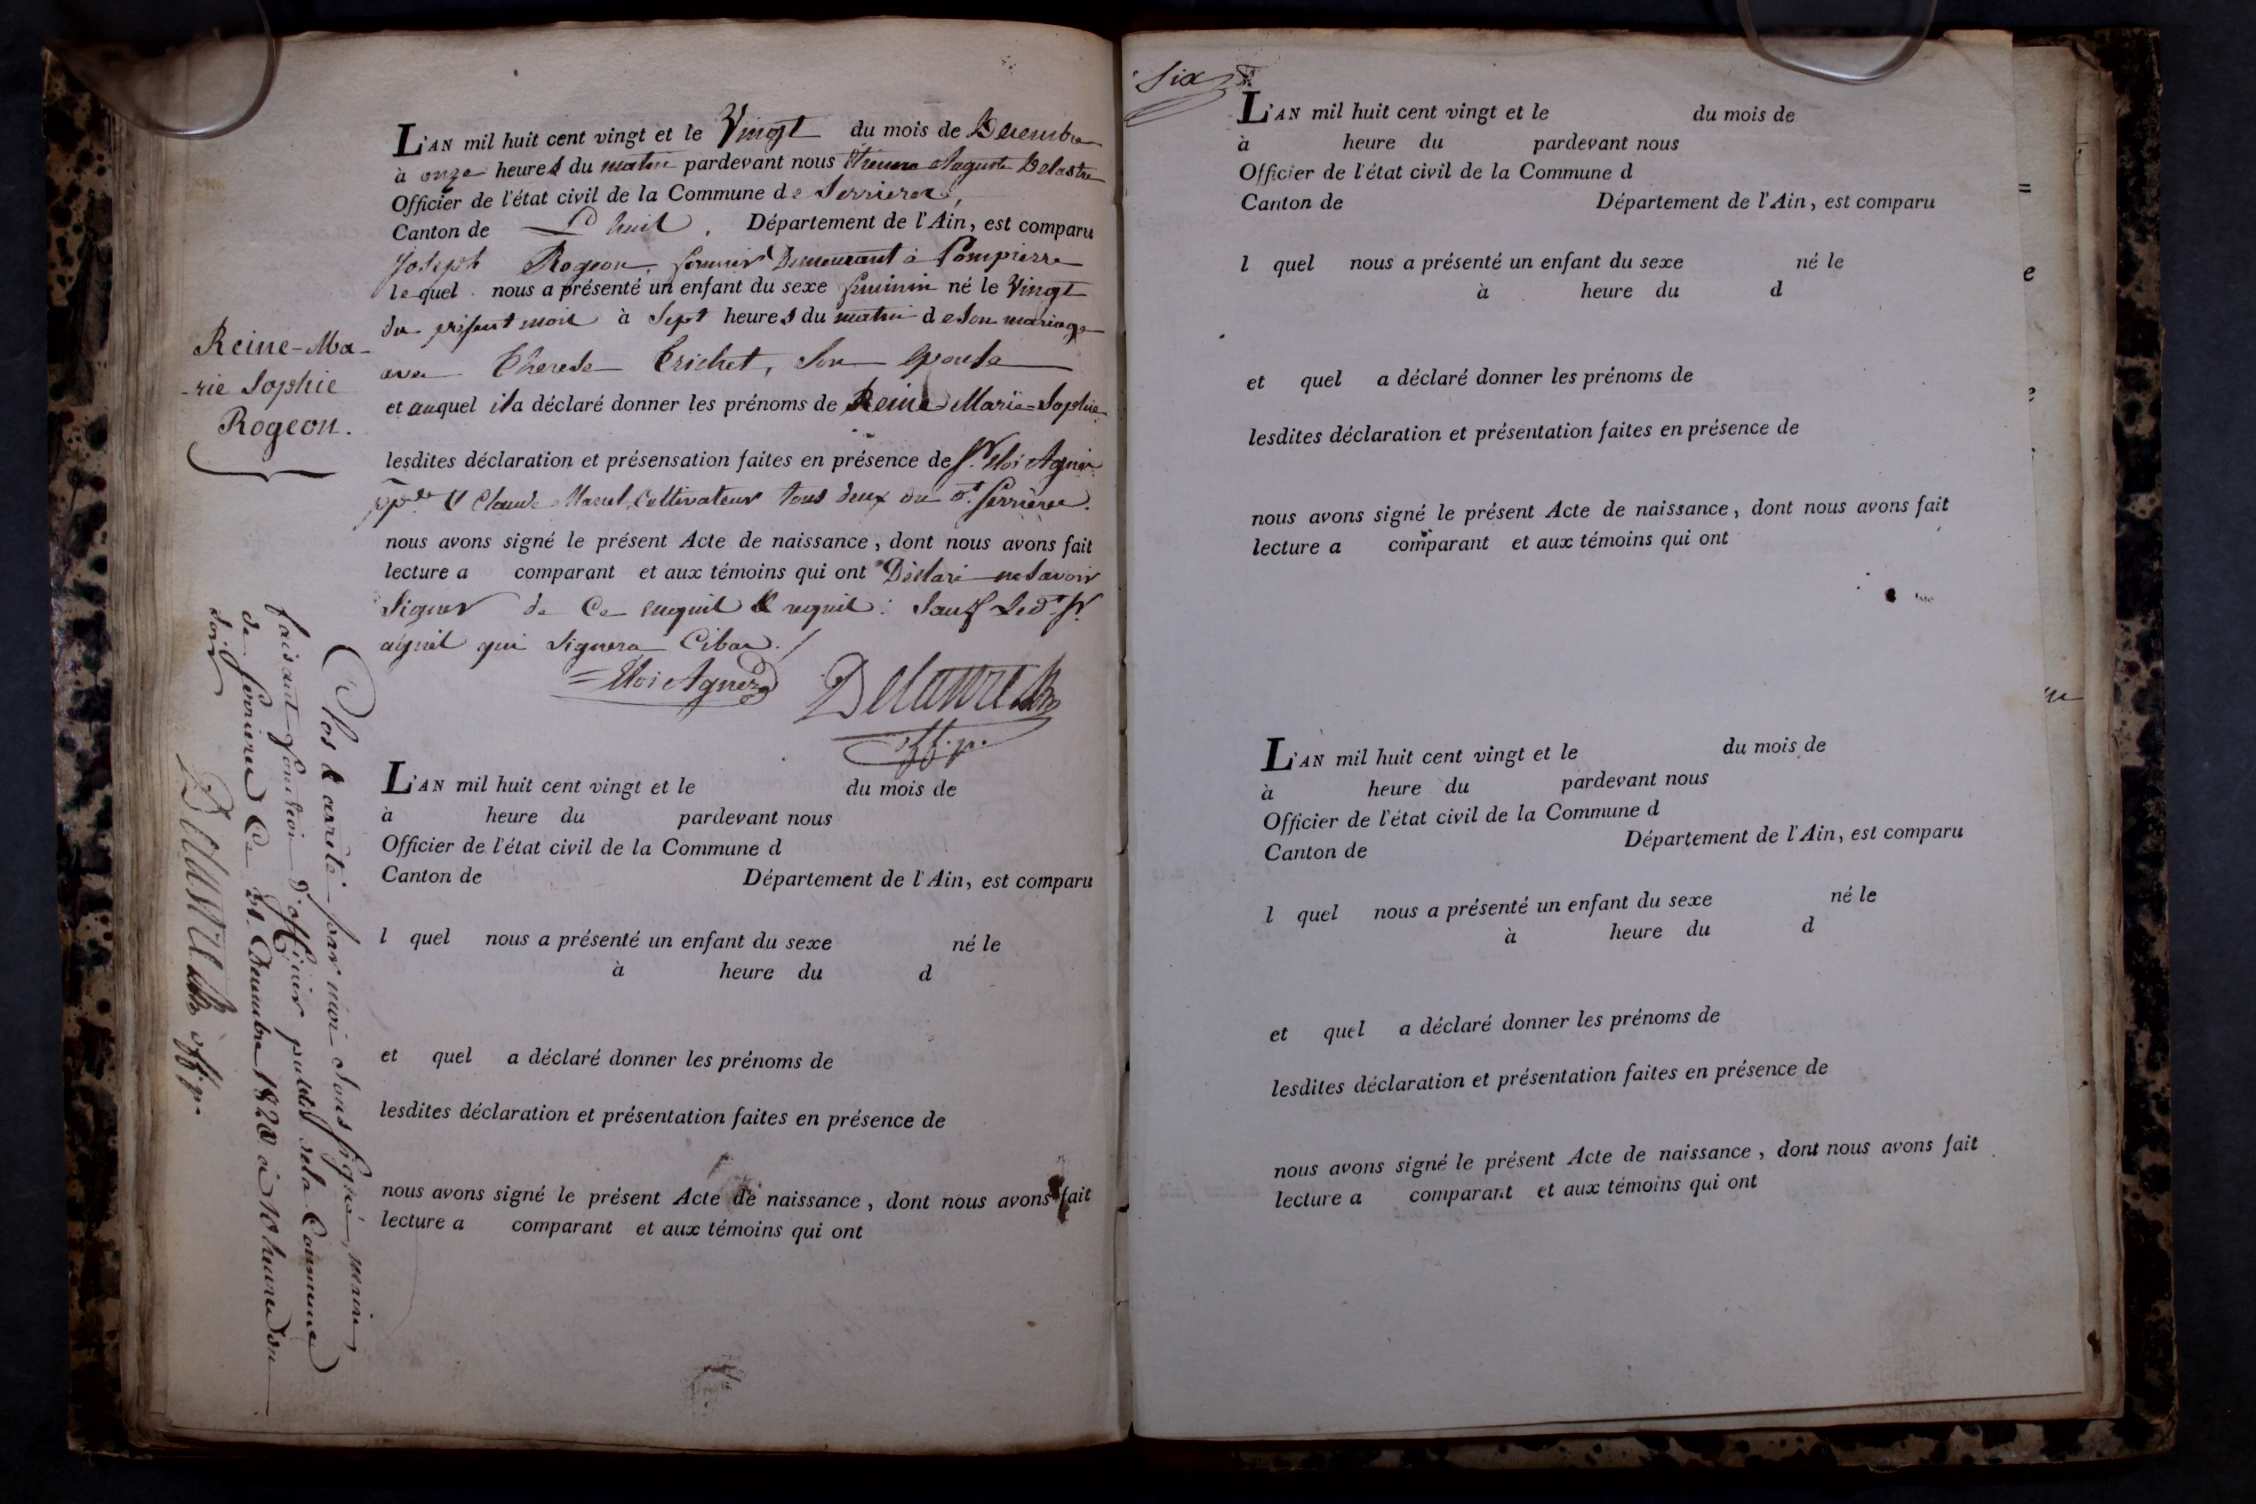 L'AN mil huit cent vingt et le Vingt du mois de Decembre
à onze heures du matin pardevant nous Etienne Auguste Delastre
Officier de l'état civil de la Commune de Serrieres,
Canton de Lhuis. Département de l'Ain, est comparu
Joseph Rogeon, fermier Demeurant à Pompierre
lequel nous a présenté un enfant du sexe feminin né le Vingt
du présent mois à Sept heures du matin de son mariage
avec Therese Trichet, son épouse
et auquel il a déclaré donner les prénoms de Reine Marie=Sophie
lesdites déclaration et présensation faites en présence de Sr. Eloi Agniel
Claude Cultivateur tous deux du dt. Serrieres.
nous avons signé le présent Acte de naissance, dont nous avons fait
lecture a comparant et aux témoins qui ont Déclaré ne savoir
Signer de ce enquis & requis : sauf Ledt. Sr.
agniel qui signera Cibas.
Eloi Agniel Delastre
off. p.
Reine-Ma-
-rie Sophie
Rogeon.
Clos & arrêté par moi soussigné, maire,
faisant fonction d'officier public de la Commune
de Serrieres Ce 31. Decembre 1820 à 10 heures du
soir
Delastre off. p.
L'AN mil huit cent vingt et le du mois de
à heure du pardevant nous
Officier de l'état civil de la Commune d
Canton de Département de l'Ain, est comparu
l quel nous a présenté un enfant du sexe né le
à heure du d
et quel a déclaré donner les prénoms de
lesdites déclaration et présentation faites en présence de
nous avons signé le présent Acte de naissance, dont nous avons fait
lecture a comparant et aux témoins qui ont
Six
L'AN mil huit cent vingt et le du mois de
à heure du pardevant nous
Officier de l'état civil de la Commune d
Canton de Département de l'Ain, est comparu
l quel nous a présenté un enfant du sexe né le
à heure du d
et quel a déclaré donner les prénoms de
lesdites déclaration et présentation faites en présence de
nous avons signé le présent Acte de naissance, dont nous avons fait
lecture a comparant et aux témoins qui ont
L'AN mil huit cent vingt et le du mois de
à heure du pardevant nous
Officier de l'état civil de la Commune d
Canton de Département de l'Ain, est comparu
l quel nous a présenté un enfant du sexe né le
à heure du d
et quel a déclaré donner les prénoms de
lesdites déclaration et présentation faites en présence de
nous avons signé le présent Acte de naissance, dont nous avons fait
lecture a comparant et aux témoins qui ont